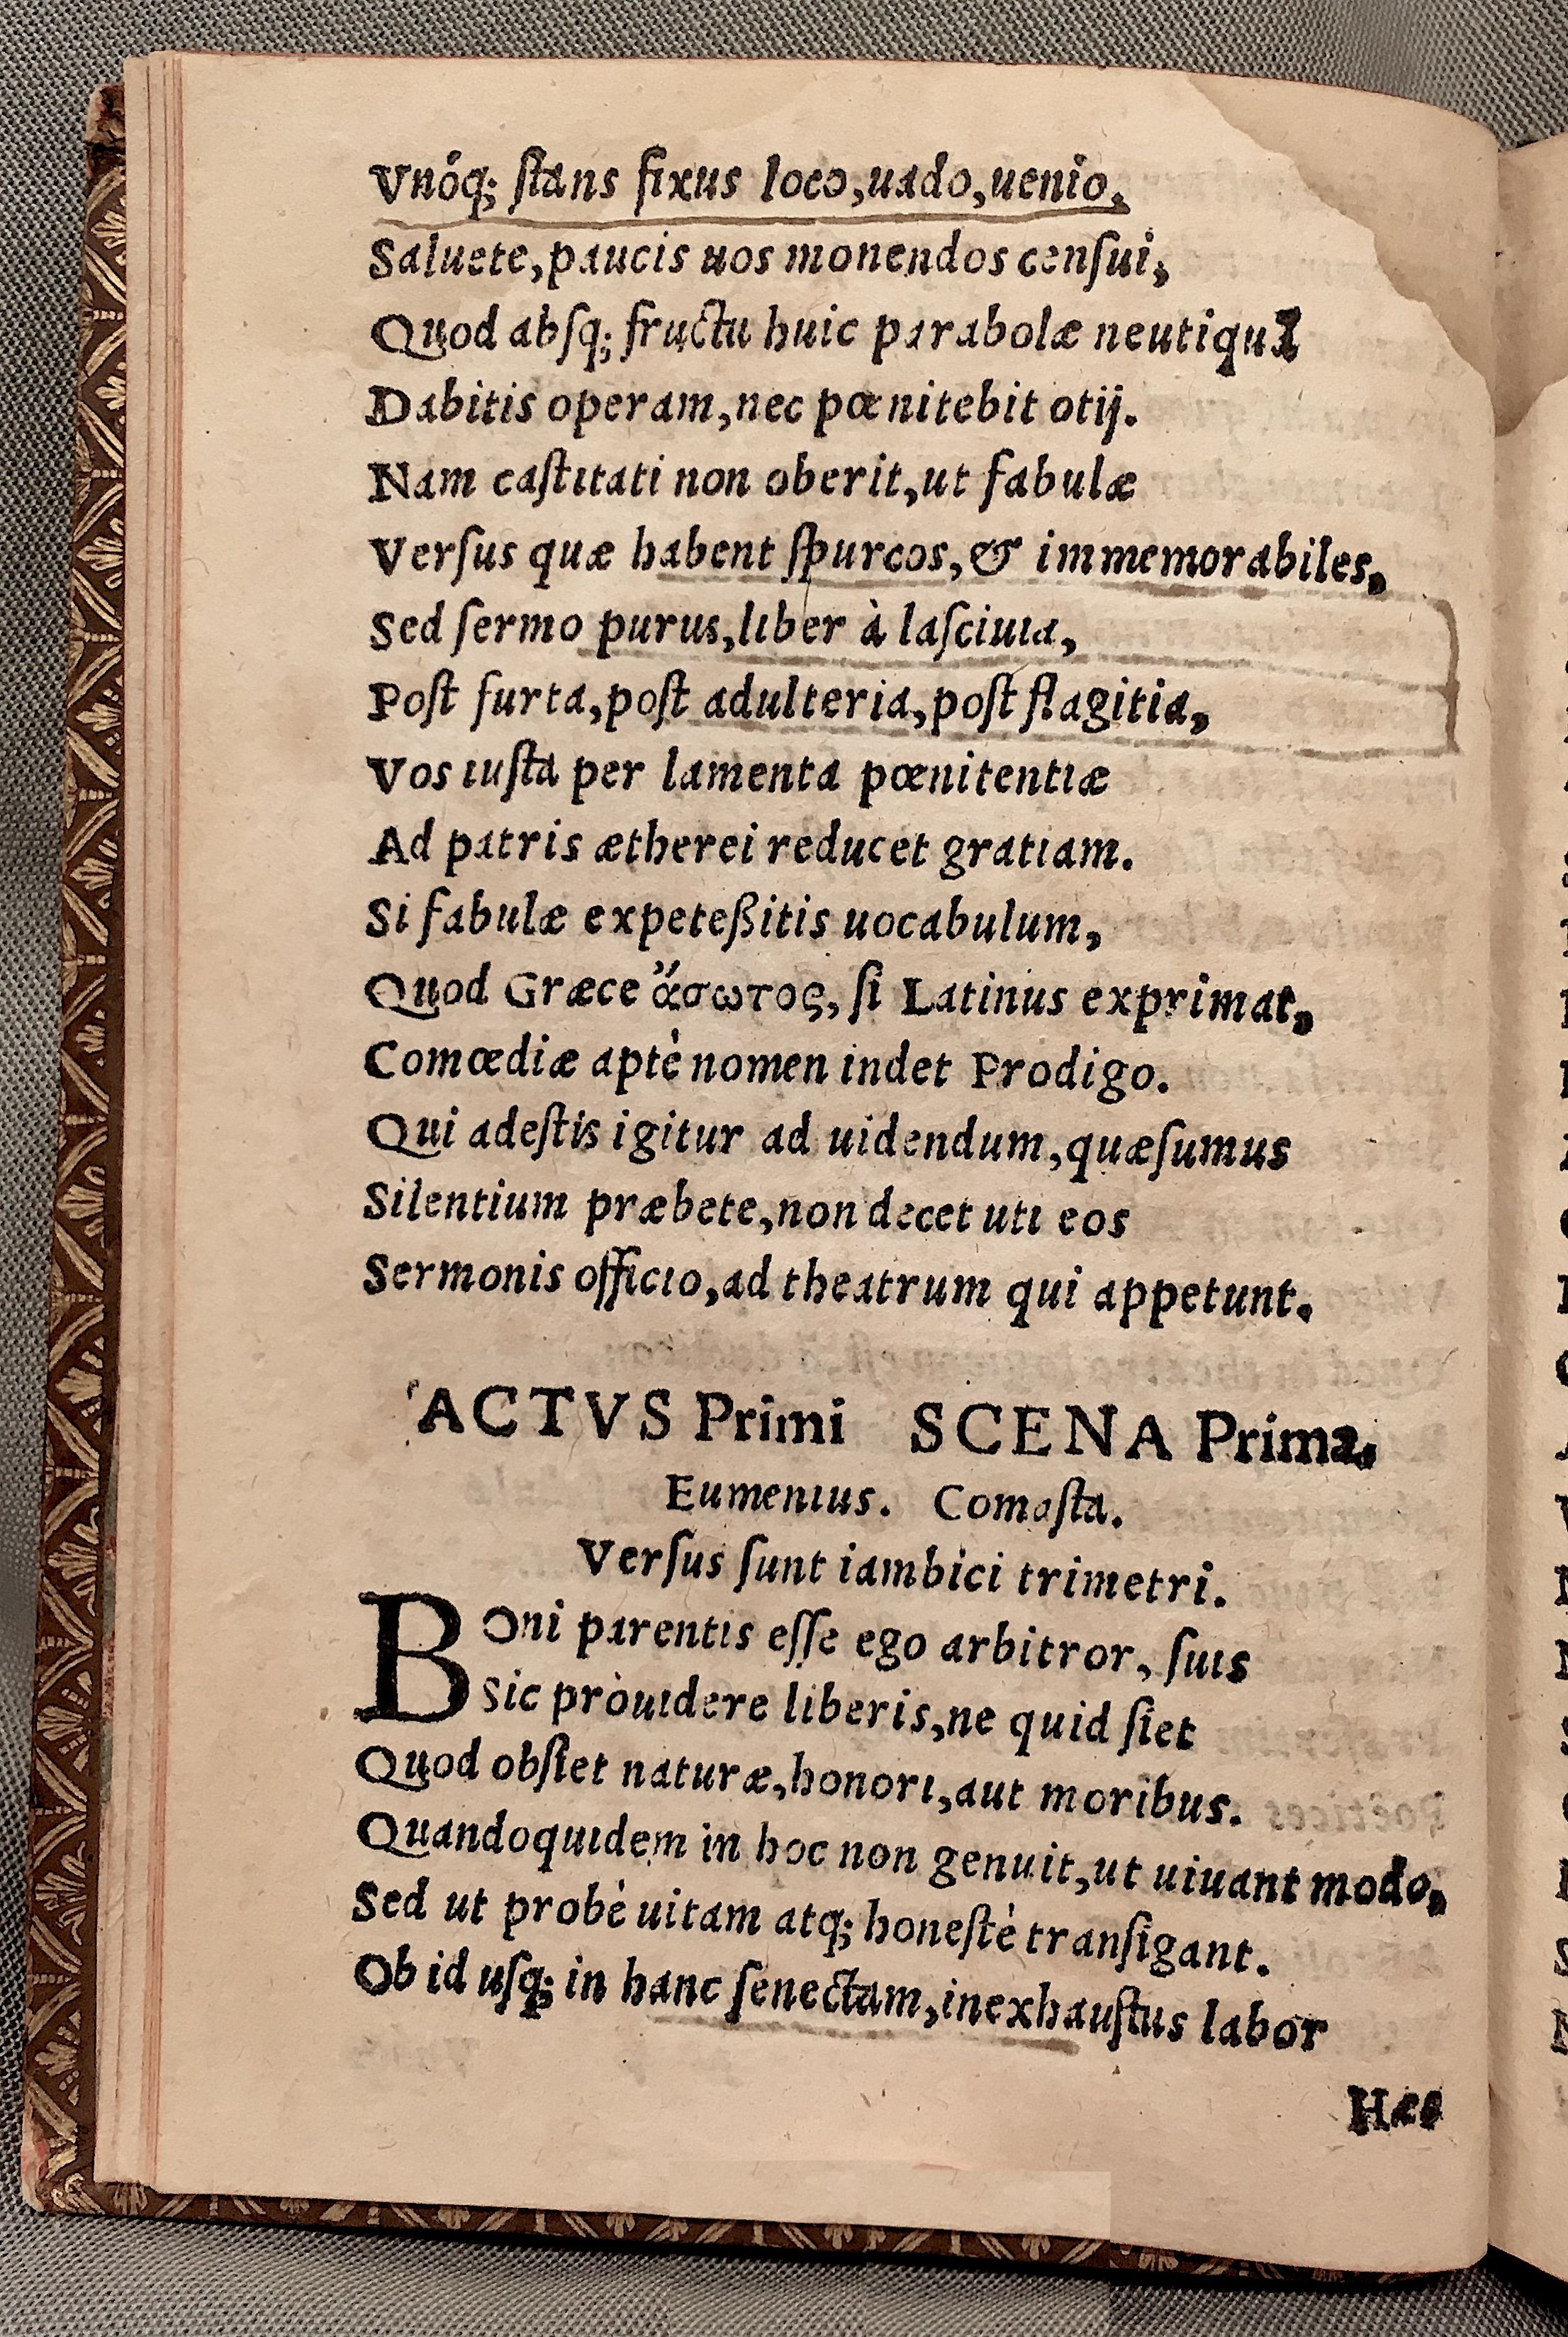 Vnóq; ſtans fixus loco,uado,uenio.
Saluete,paucis uos monendos cenſui,
Quod abſq; fructu huic parabolæ neutiquã
Dabitis operam,nec pœnitebit otij.
Nam caſtitati non oberit,ut fabulæ
Verſus quæ habent ſpurcos,& immemorabiles,
Sed ſermo purus,liber à laſciuia,
Poſt furta,poſt adulteria,poſt flagitia,
Vos iuſta per lamenta pœnitentiæ
Ad patris ætherei reducet gratiam.
Si fabulæ expeteßitis uocabulum,
Quod Græce ἄσωτος, ſi Latinus exprimat,
Comœdiæ aptè nomen indet Prodigo.
Qui adeſtis igitur ad uidendum,quæſumus
Silentium præbete,non decet uti eos
Sermonis officio,ad theatrum qui appetunt.
ACTVS Primi SCENA Prima.
Eumenius. Comaſta.
Verſus ſunt iambici trimetri.
BOni parentis eſſe ego arbitror, ſuis
Sic prouidere liberis,ne quid ſiet
Quod obſiet naturæ,honori,aut moribus.
Quandoquidem in hoc non genuit,ut uiuant modo,
Sed ut probè uitam atq; honeſtè tranſigant.
Ob id uſq; in hanc ſenectam,inexhauſtus labor
Hæc